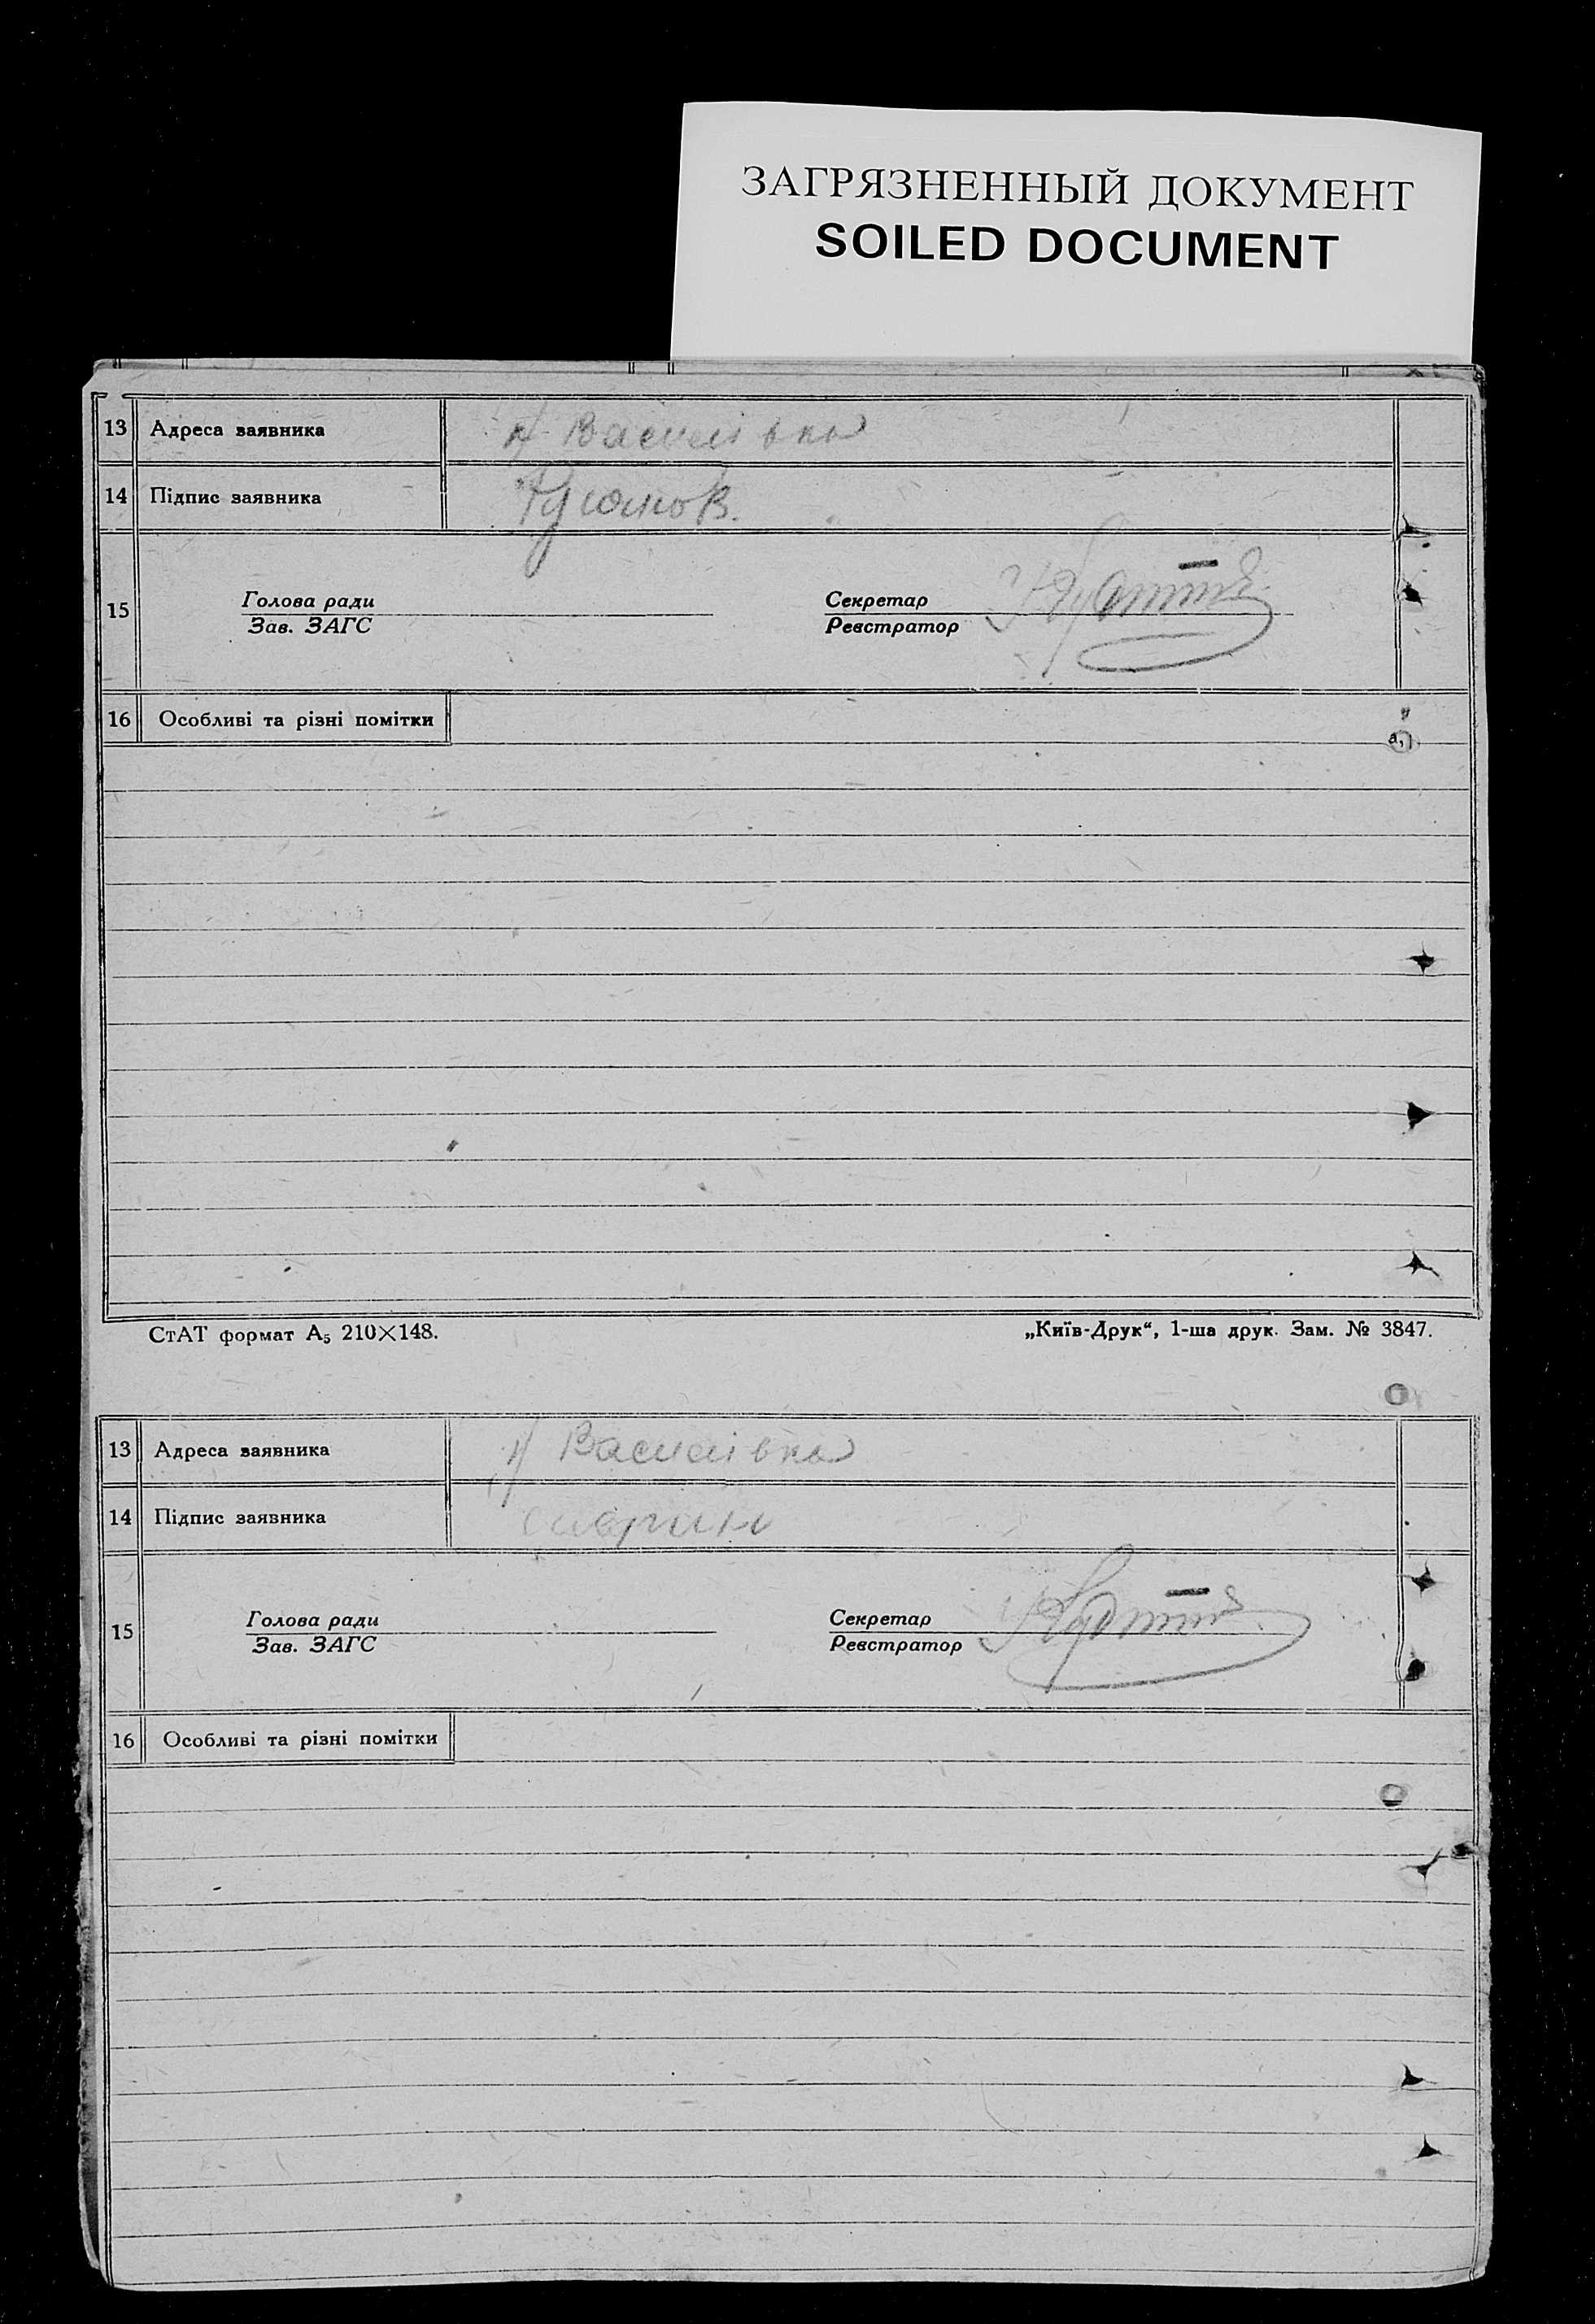 ЗАГРЯЗНЕННЫЙ ДОКУМЕНТ
SOILED DOCUMENT
13 Адреса заявника Василівка
14 Підпис заявника
15 Голова ради Секретар
Зав. ЗАГС Реєстратор
16 Особливі та різні помітки
СтАТ формат А5 210×148. „Київ-Друк“, 1-ша друк. Зам. № 3847.
13 Адреса заявника Василівка
14 Підпис заявника
15 Голова ради Секретар
Зав. ЗАГС Реєстратор
16 Особливі та різні помітки